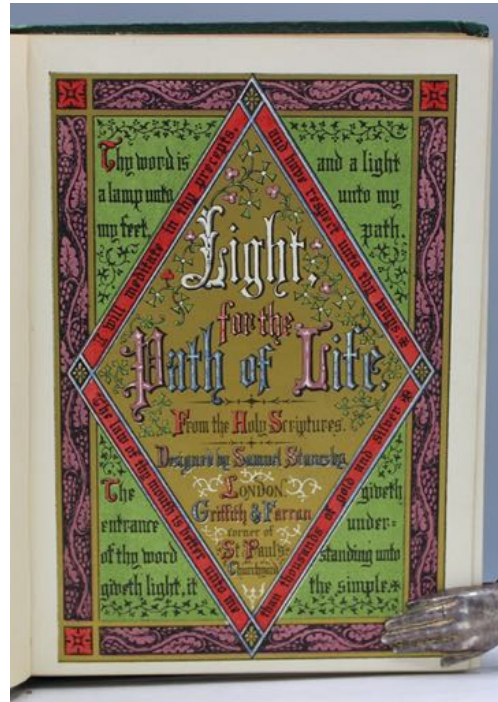 Thy word is
a lamp unto
my feet,
and a light
unto my
path.
I will meditate in thy precepts,
and have respect unto thy ways
Light,
for the
Path of Life.
From the Holy Scriptures.
Designed by Samuel Stanesby.
LONDON
Griffith & Farran
corner of
St Paul's
Churchyard
The law of thy mouth is better unto me
than thousands of gold and silver
The
entrance
of thy word
giveth light, it
giveth
under-
standing unto
the simple.